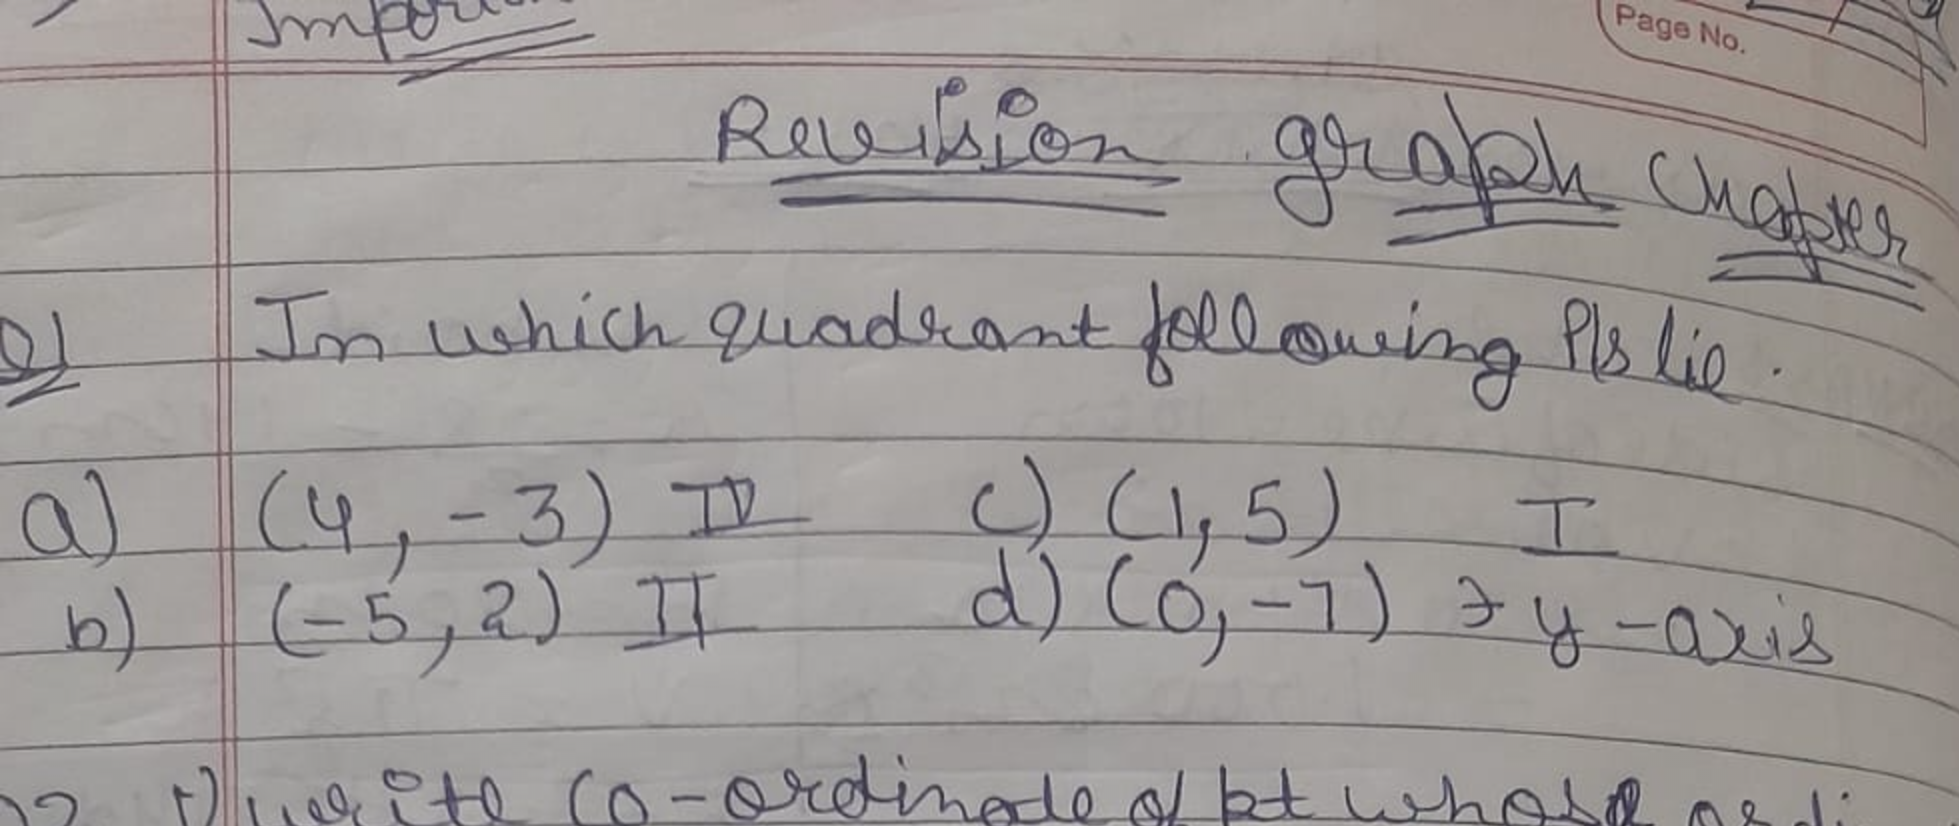 Page No.
Revision graph Chapter
Q1 In which quadrant following Pts lie.
a) (4, -3) IV c) (1, 5) I
b) (-5, 2) II d) (0, -7) → y-axis
i) write co-ordinate of pt whose